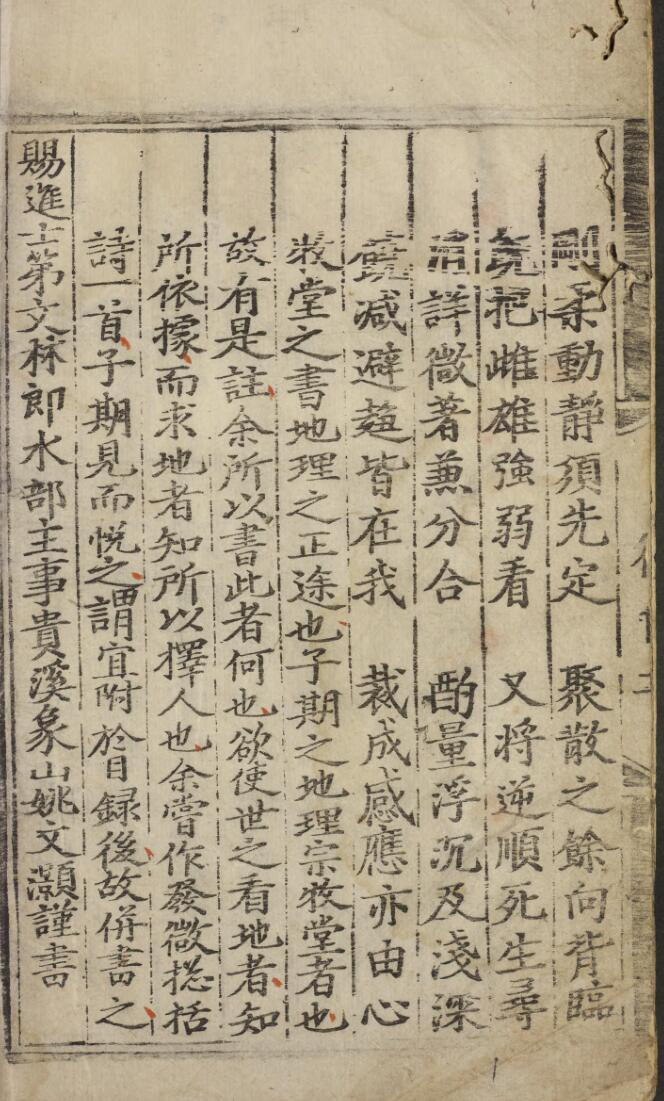 剛柔動靜須先定　聚散之餘向背臨
竟把雌雄強弱看　又將逆順死生尋
用詳微著兼分合　酌量浮沉及淺深
饒減避趍皆在我　裁成感應亦由心
牧堂之書地理之正途也子期之地理宗牧堂者也
故有是註余所以書此者何也欲使世之看地者知
所依據而求地者知所以擇人也余嘗作發微揔括
詩一首子期見而悅之謂宜附於目録後故併書之
賜進士第文林郎水部主事貴溪象山姚文灝謹書